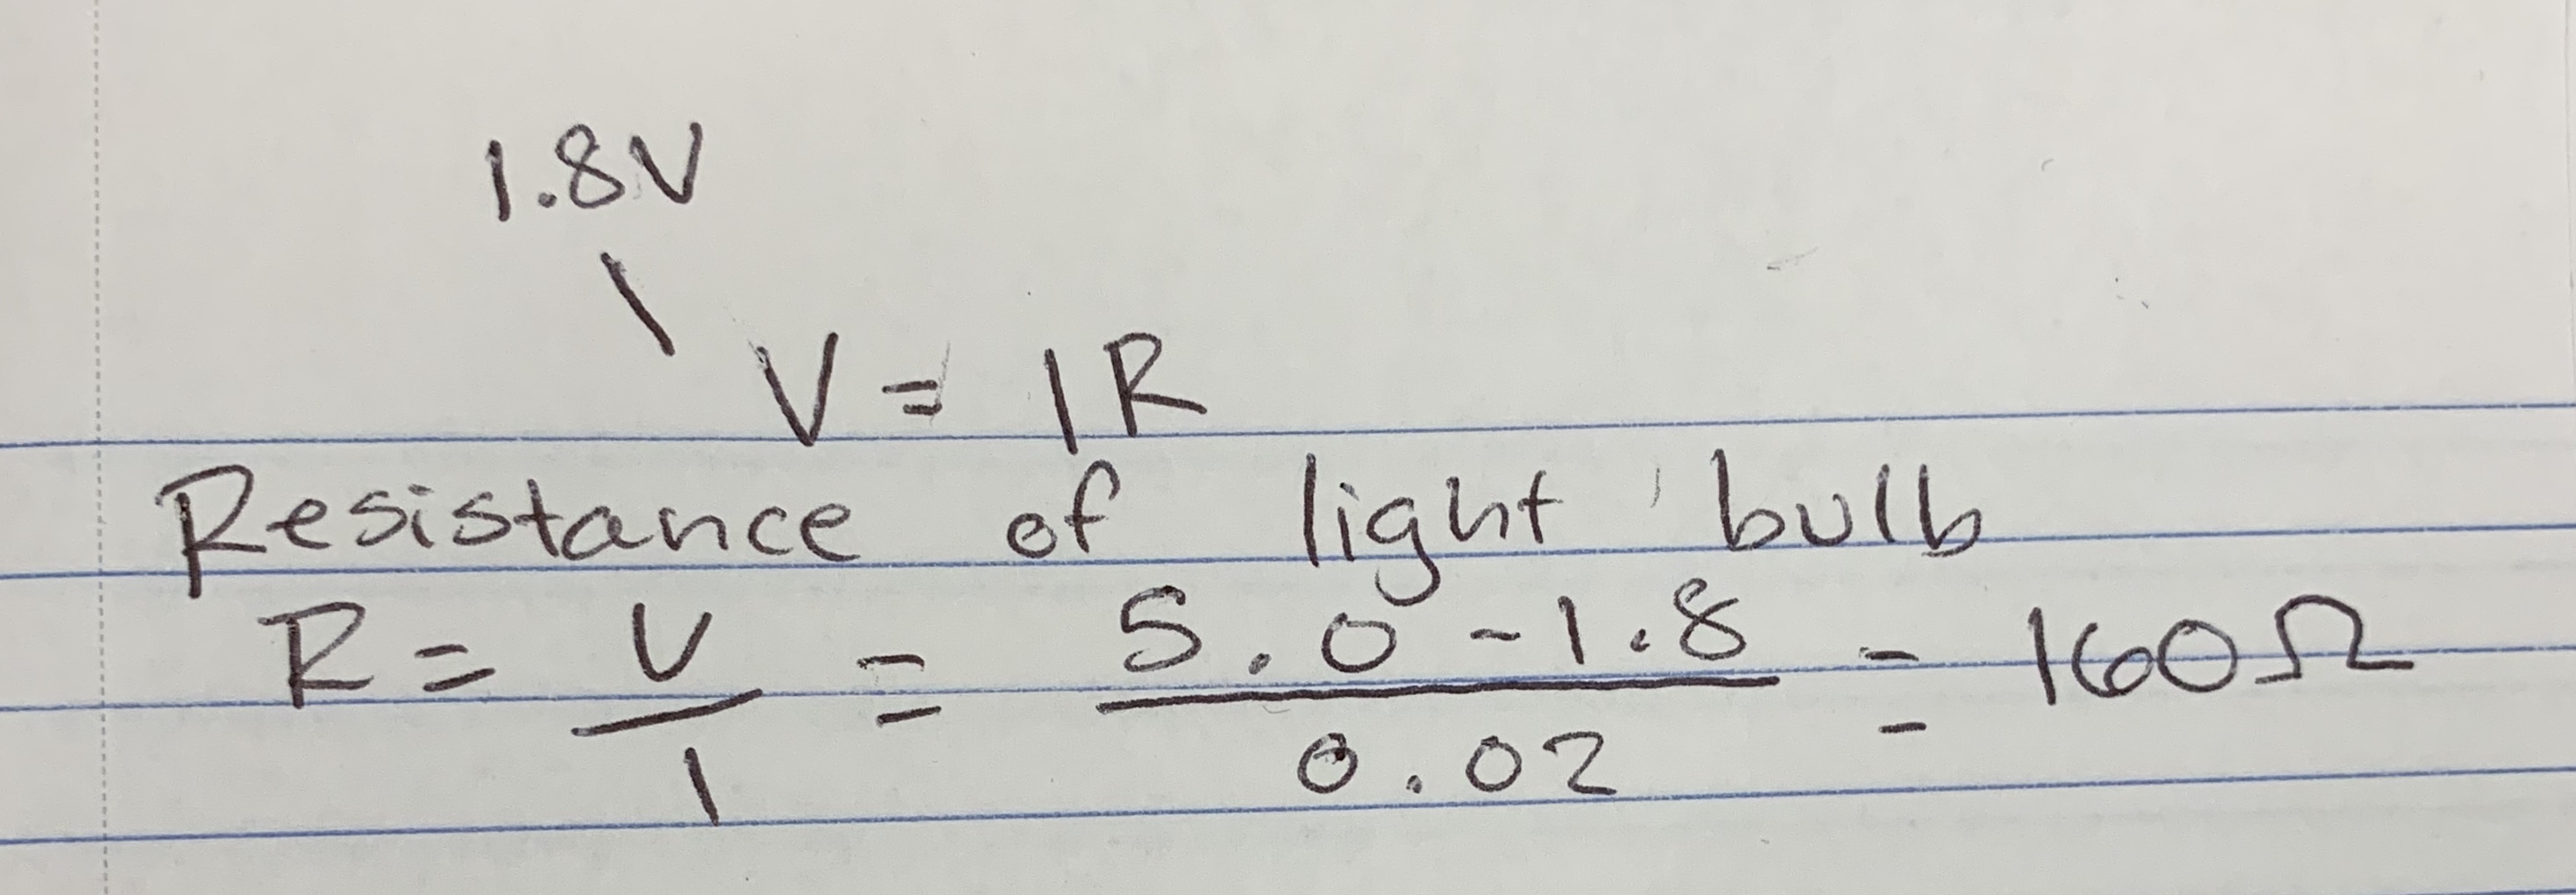 1.8V
V = IR
Resistance of light bulb
R = V/I = 5.0 - 1.8/0.02 = 160Ω